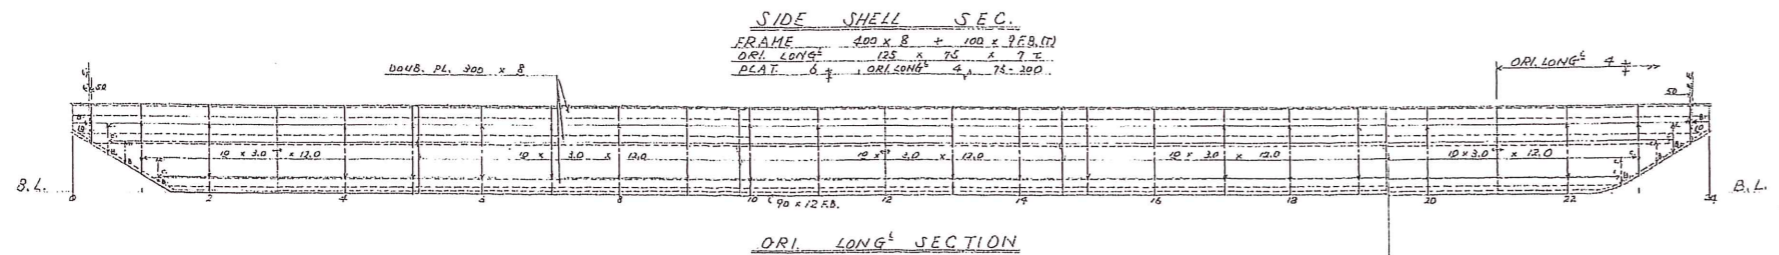 SIDE SHELL SEC.
FRAME 400 x 8 + 100 x 9 F.B.(T)
ORI. LONGL 125 x 75 x 7 I
DOUB. PL. 300 x 8
ORI. LONGL 4
50
50
10 x 3.0 x 12.0
10 x 3.0 x 12.0
10 x 3.0 x 12.0
10 x 3.0 x 12.0
10 x 3.0 x 12.0
B.L.
B.L.
0 2 4 6 8 10 12 14 16 18 20 22 24
90 x 12 F.B.
ORI. LONGL SECTION